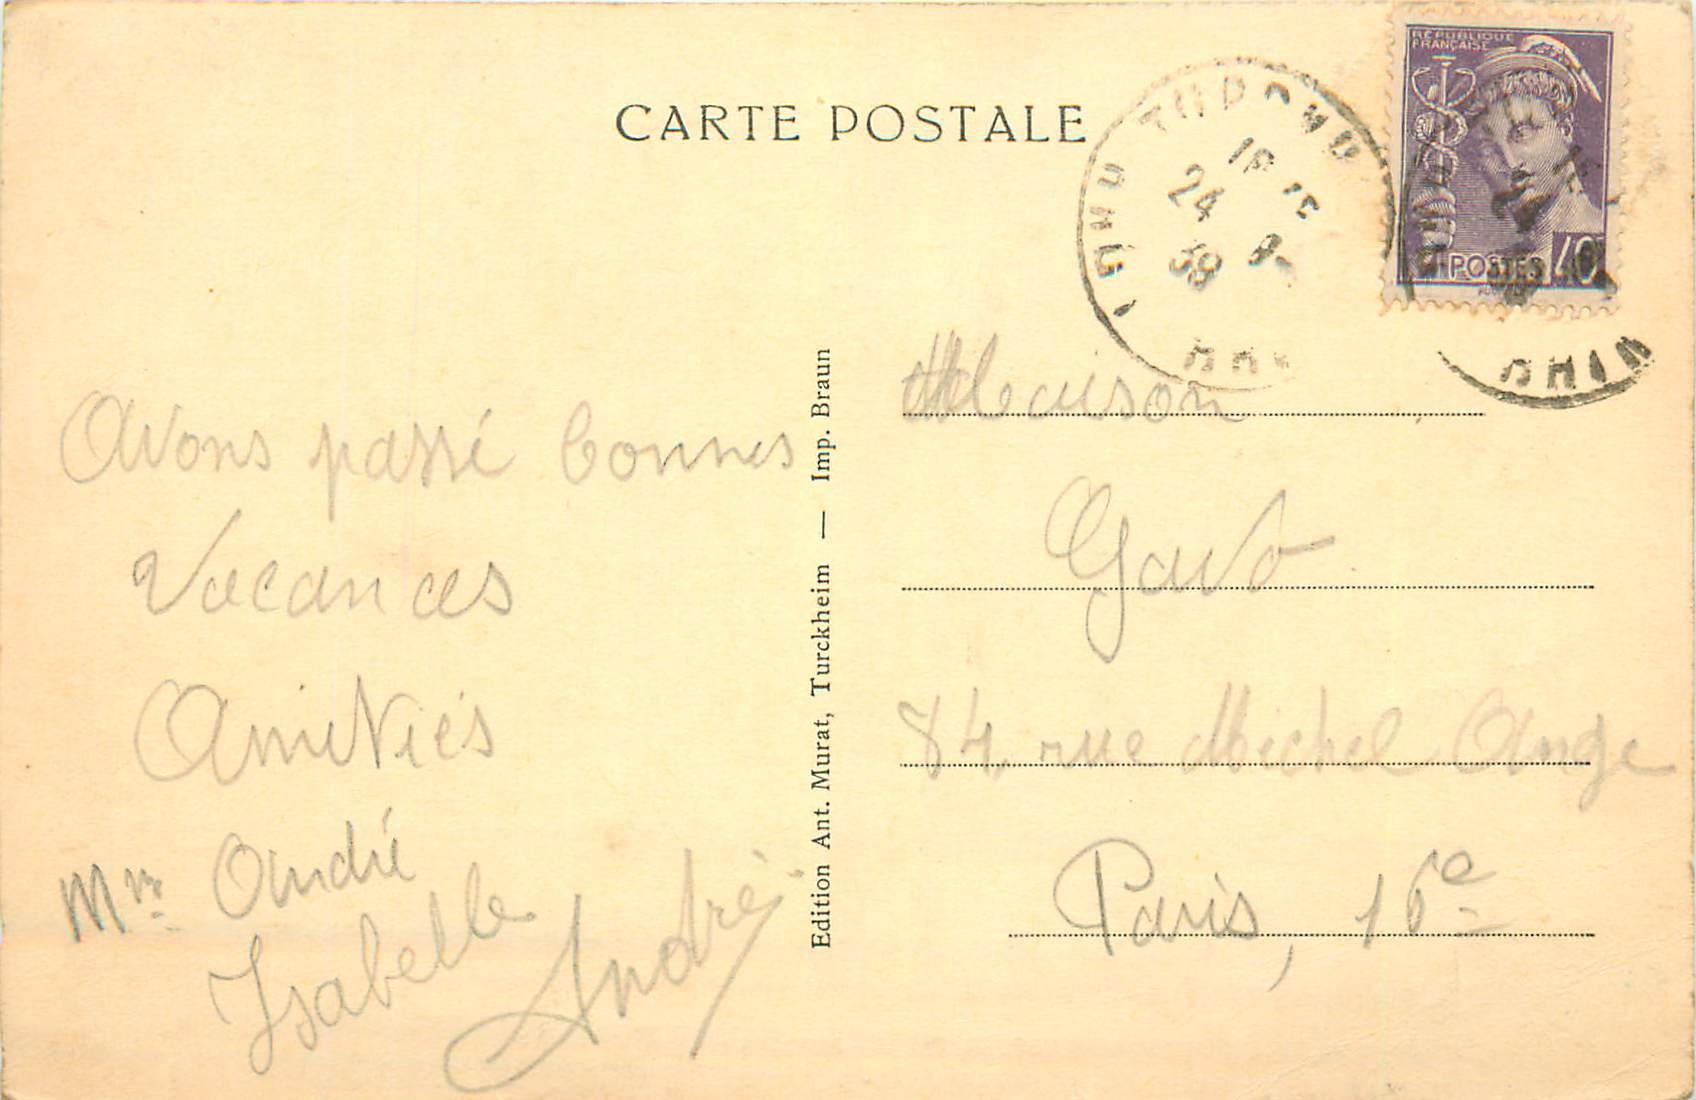 CARTE POSTALE
RÉPUBLIQUE
FRANÇAISE
POSTES 40c
24
39
RHIN
Avons passé bonnes
Vacances
Amitiés
Mme André
Isabelle
André
Edition Ant. Murat, Turckheim — Imp. Braun
Maison
84, rue Michel Ange
Paris, 16e